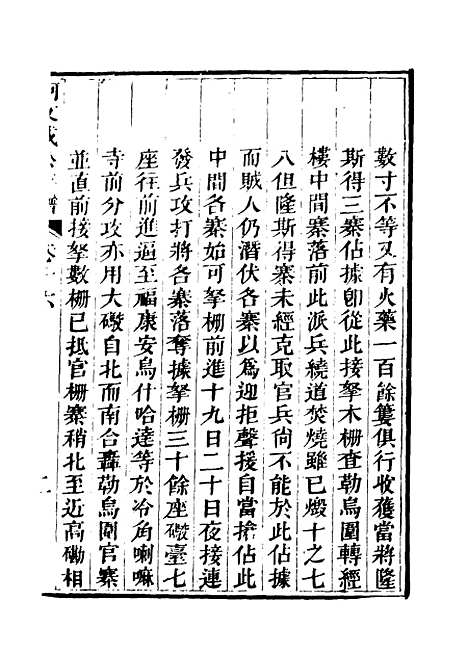 數寸不等又有火藥一百餘簍俱行收獲當將隆
斯得三寨佔據卽從此接拏木柵查勒烏圍轉經
樓中間寨落前此派兵繞道焚燒雖已燬十之七
八但隆斯得寨未經克取官兵尙不能於此佔據
而賊人仍潛伏各寨以爲迎拒聲援自當搶佔此
中間各寨始可拏柵前進十九日二十日夜接連
發兵攻打將各寨落奪據拏柵三十餘座礮臺七
座往前進逼至福康安烏什哈達等於冷角喇嘛
寺前分攻亦用大礮自北而南合轟勒烏圍官寨
並直前接拏數柵已抵官柵寨稍北至近高磡相
阿文成公年譜 卷十六 二